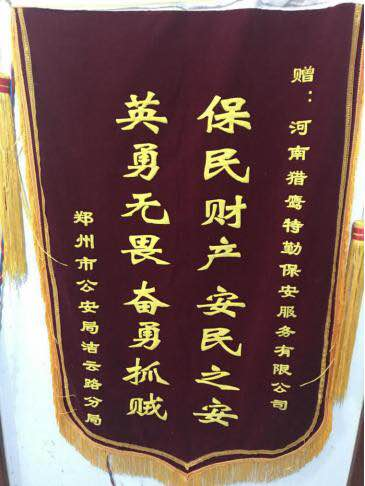 赠：河南猎鹰特勤保安服务有限公司
保民财产安民之安
英勇无畏奋勇抓贼
郑州市公安局洁云路分局